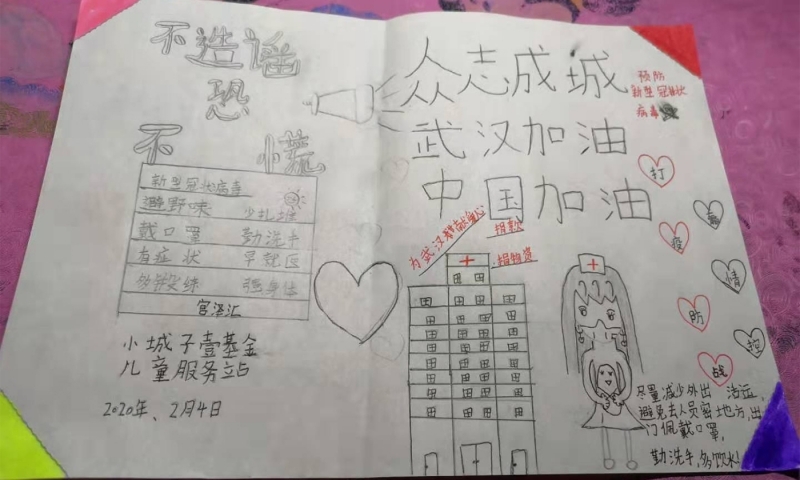 不造谣
不恐慌
新型冠状病毒
避野味 少扎堆
戴口罩 勤洗手
有症状 早就医
多锻炼 强身体
宫泽汇
小城子壹基金
儿童服务站
2020年、2月4日
众志成城
武汉加油
中国加油
预防
新型冠状
病毒
为武汉奉献爱心
捐款
捐物资
打
疫
情
防
控
战
尽量减少外出 活运,
避免去人员密地方,出
门佩戴口罩,
勤洗手,多饮水!